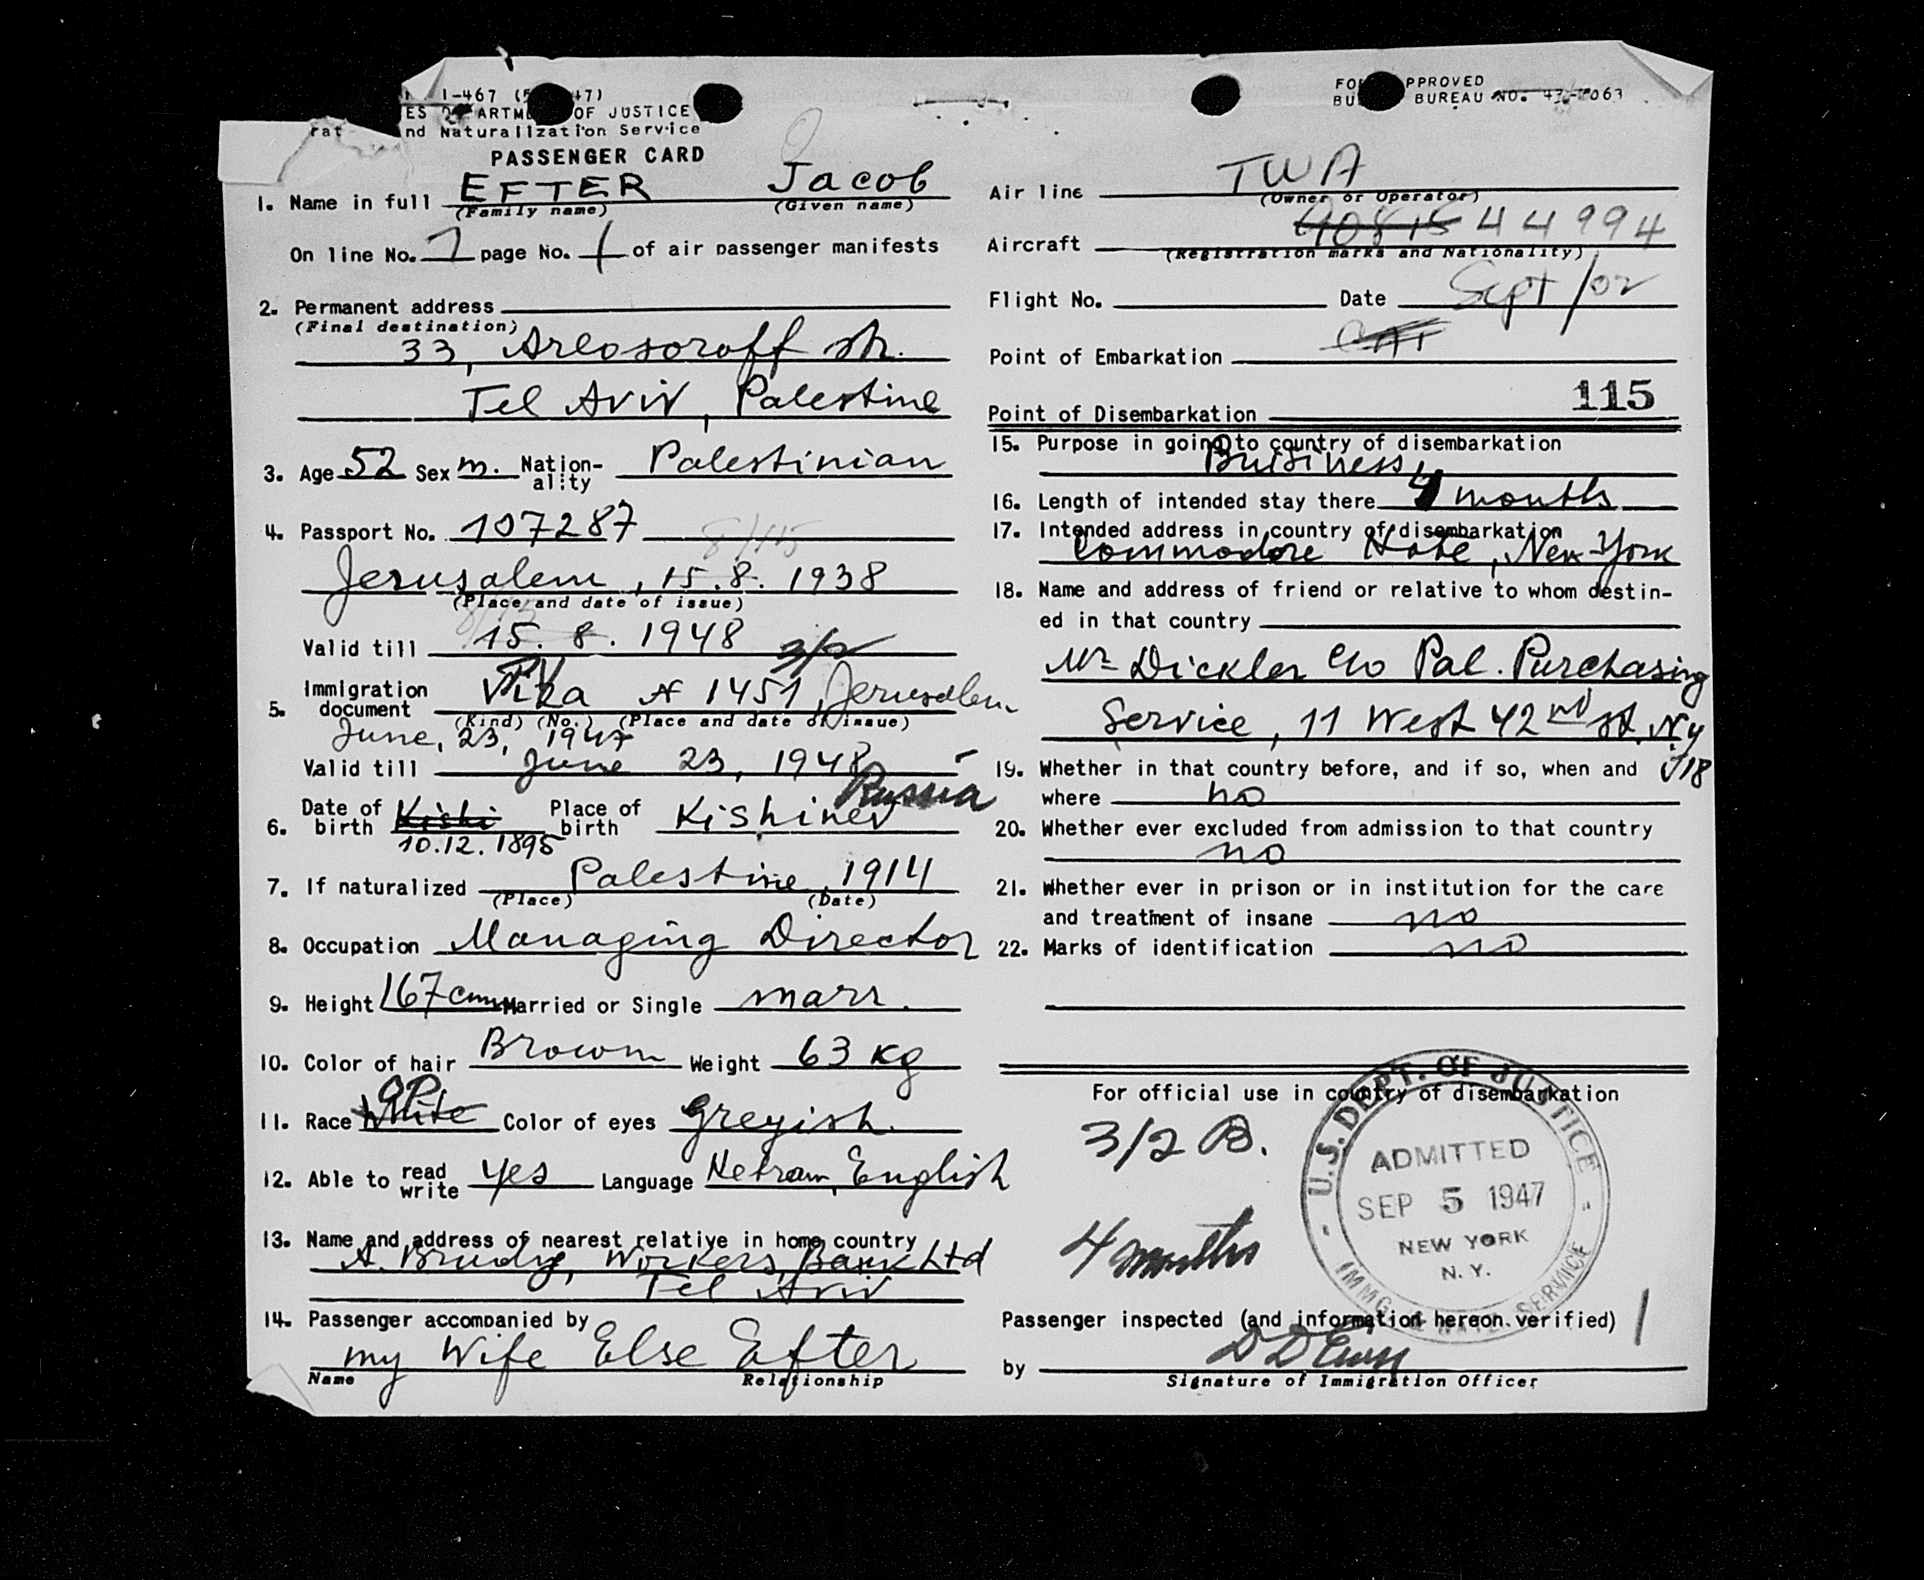 I-467
ARTM OF JUSTICE
nd Naturalization Service
PASSENGER CARD
1. Name in full EFTER Jacob
(Family name) (Given name)
On line No. 7 page No. 1 of air passenger manifests
2. Permanent address
(Final destination)
33, Arlosoroff str.
Tel Aviv, Palestine
3. Age 52 Sex m. Nation-ality Palestinian
4. Passport No. 107287
8/15
Jerusalem, 15.8. 1938
(Place and date of issue)
Valid till 15. 8. 1948 3/2
5. Immigration document PV Viza A 1451, Jerusalem
(Kind) (No.) (Place and date of issue)
June, 23, 1947
Valid till June 23, 1948
6. Date of birth Kishi Place of birth Kishinev Russia
10.12.1895
7. If naturalized Palestine, 1914
(Place) (Date)
8. Occupation Managing Director
9. Height 167 cm Married or Single marr.
10. Color of hair Brown Weight 63 kg
11. Race White Color of eyes Greyish.
12. Able to read write yes Language Hebrew, English
13. Name and address of nearest relative in home country
A. Brudny, Workers Bank Ltd
Tel Aviv
14. Passenger accompanied by
my Wife Else Efter
Name Relationship
FO PPROVED
BU BUREAU NO.
Air line TWA
(Owner or Operator)
Aircraft 90815 44994
(Registration marks and Nationality)
Flight No. Date Sept/02
Point of Embarkation
Point of Disembarkation 115
15. Purpose in going to country of disembarkation
Buisiness,
16. Length of intended stay there 4 months
17. Intended address in country of disembarkation
Commodore Hotel, New York
18. Name and address of friend or relative to whom destin-
ed in that country
Mr Dickler c/o Pal. Purchasing
Service, 11 West 42nd st. N.y
J18
19. Whether in that country before, and if so, when and
where no
20. Whether ever excluded from admission to that country
no
21. Whether ever in prison or in institution for the care
and treatment of insane no
22. Marks of identification no
For official use in country of disembarkation
3/2 B.
4 months
U.S. DEPT. OF JUSTICE
ADMITTED
SEP 5 1947
NEW YORK
N.Y.
IMMG. & NATZ. SERVICE
Passenger inspected (and information hereon verified)
by
Signature of Immigration Officer